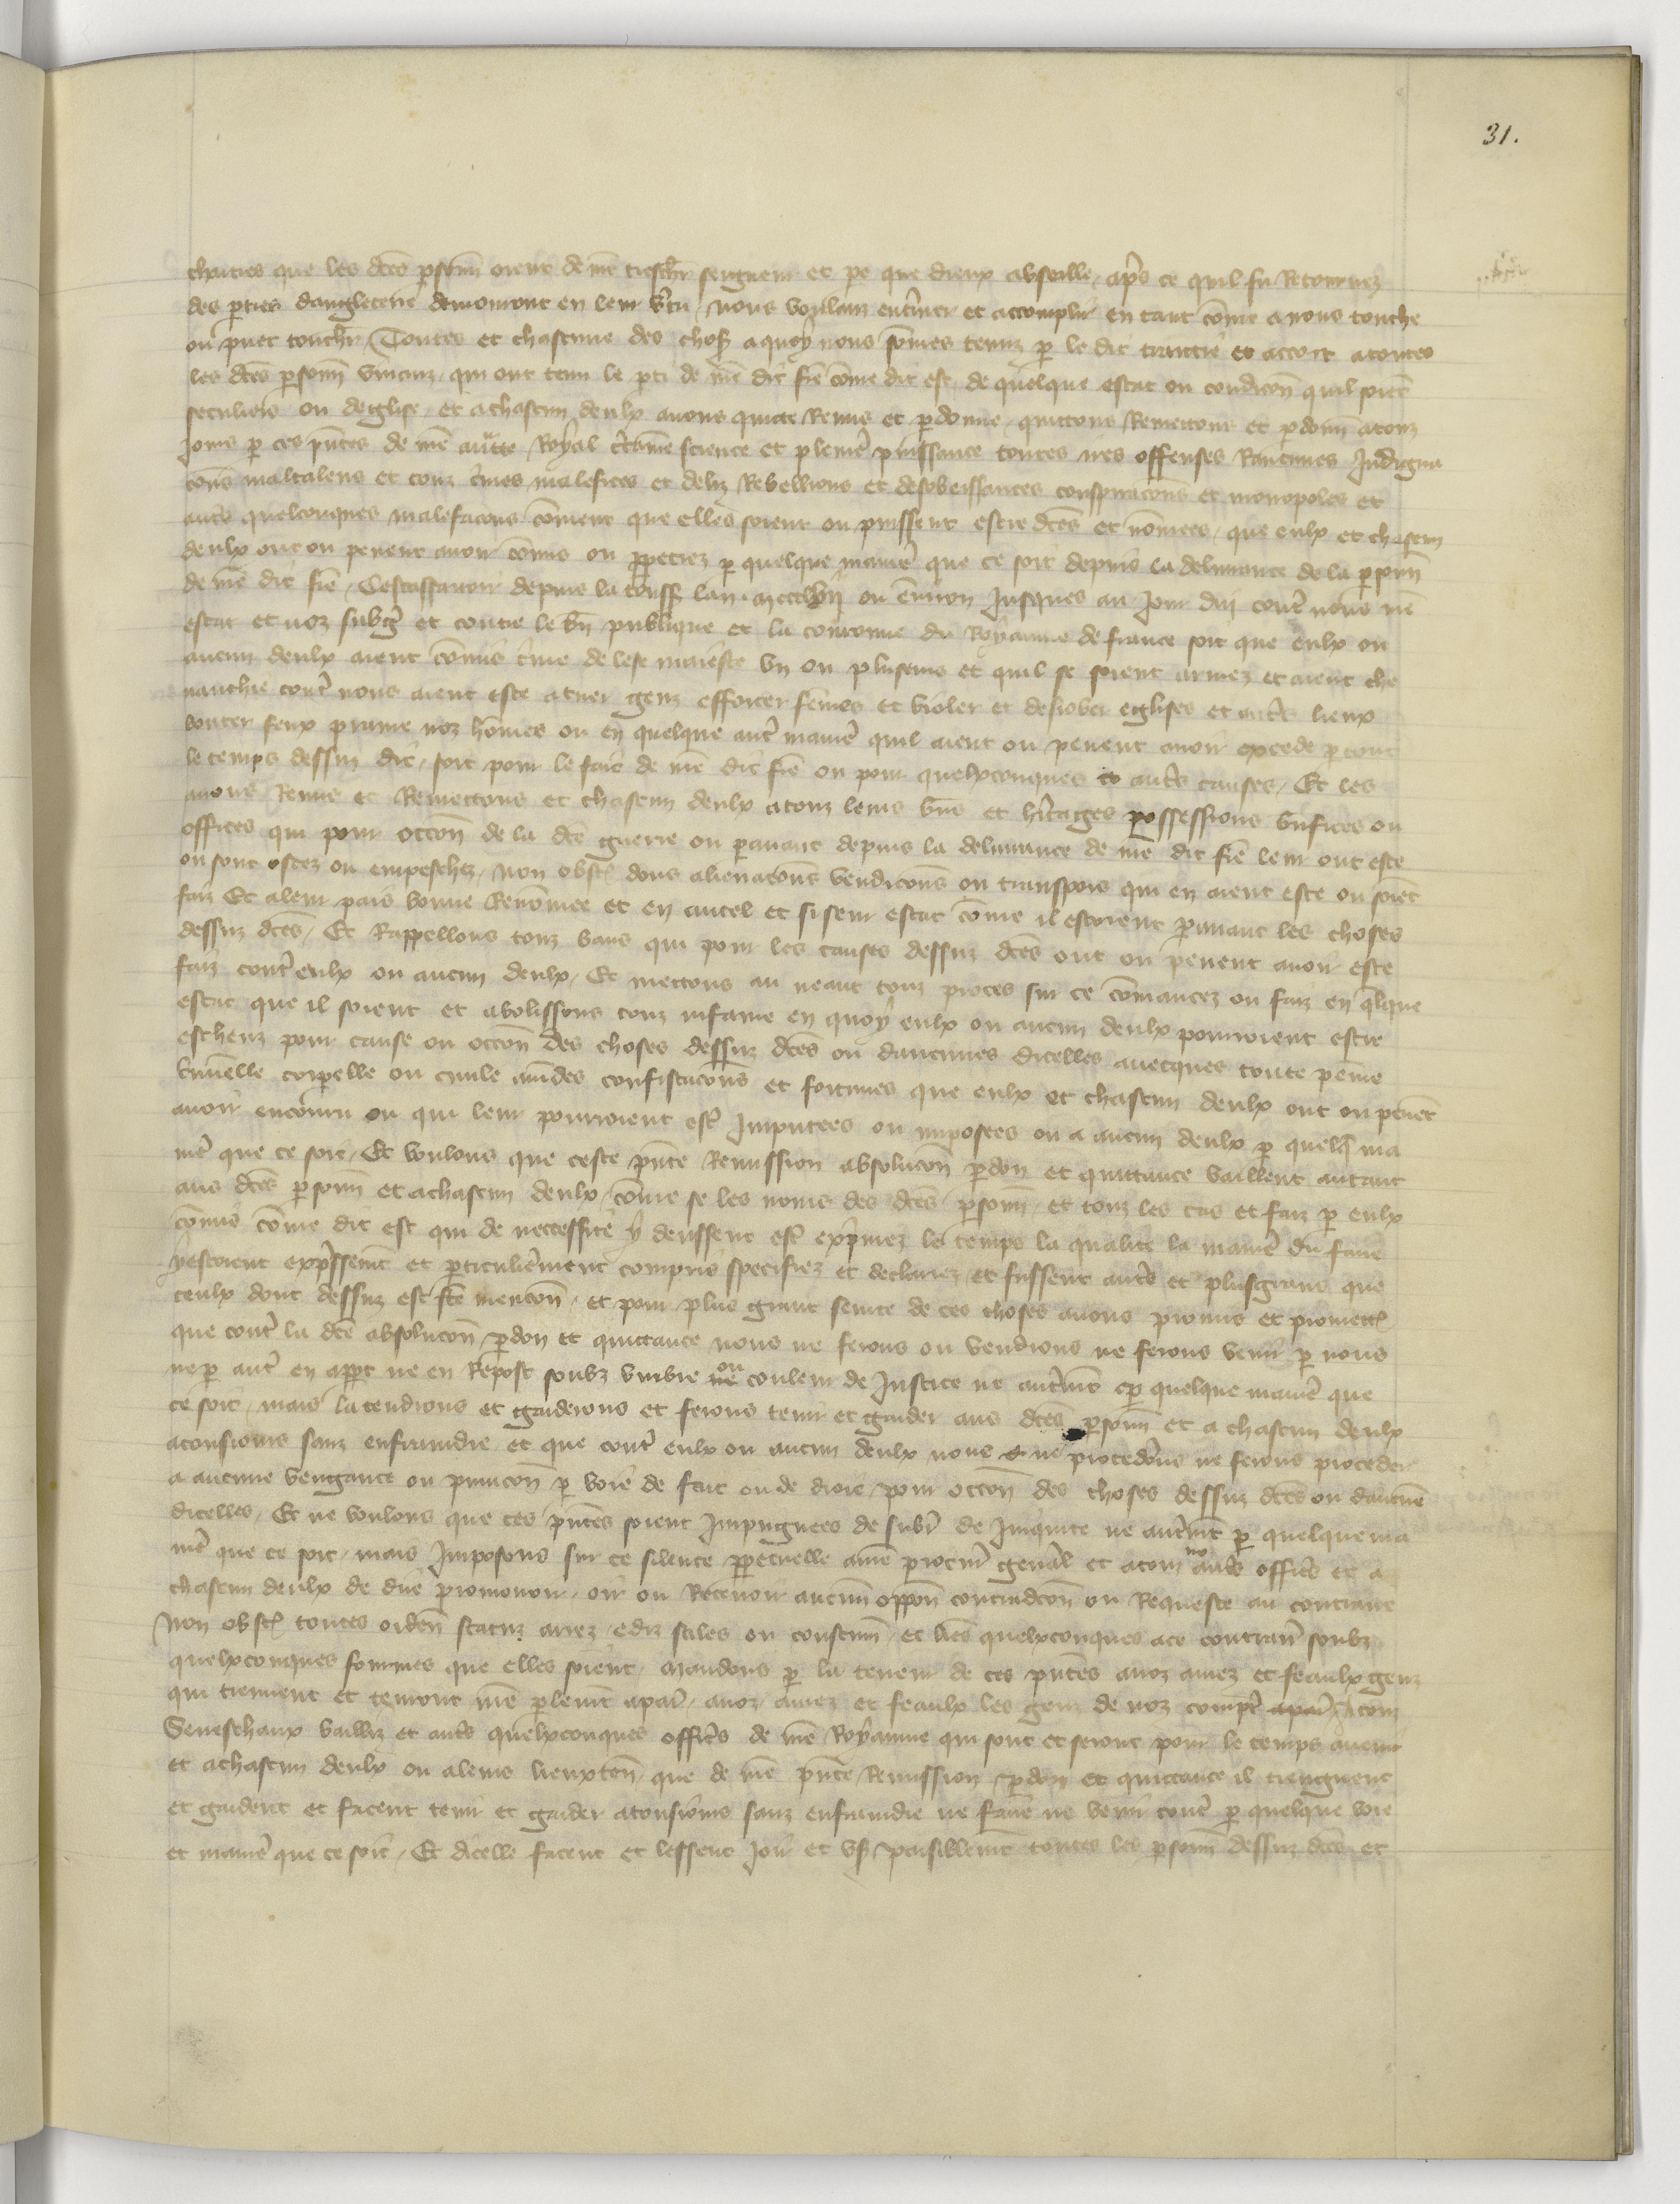 31.
chartres que les dctes psonn orent de nre treschr seigneur et pe que dieux absoille, aps ce quil fu Retournez
des pties dangleterre demorront en leur vtu, Nous voulanz entiner et accomplir en tant cōme a nous touche
ou puet touchr, Toutes et chascune des chos aquoy nous sōmes tenuz p le dit traictie et accort atoutes
les dctes psonn vivanz, qui ont tenu le pti de nre dit fre cōme dit est, de quelque estat ou condicōn quil soiēt
seculiers ou deglise, et achascun deulx avons quitte Remis et pdonne, quittons Remettons et pdonn atouz
jours p ces pntes de nre auctte Royal ctaine science et pleniere puissance toutes nres offenses Rancunes Indigna
cōns maltalens et touz cimes malefices et deliz Rebellions et desobeissances conspiracōns et monopoles et
auts quelconques malefacons cōment que elles soient ou puissent estre dctes et nōmees, que eulx et chascun
deulx ont ou pevent avoir cōmis ou ppetrez p quelque maniē que ce soit depuis la delivrance de la psonn
de nre dit fre, Cestassavoir depuis la touss lan mccclvij ou environ Jusques au Jour duy contr nous nre
estat et noz subgz et contre le bn publique et la couronne du Royaume de france soit que eulx ou
aucun deulx aient cōmis cime de lese maieste un ou pluseurs et quil se soient armez et aient che
vauchie contr nous aient este atuer genz efforcer fēmes et violer et desrober eiglises et auts lieux
bouter feux prame noz hōmes ou en quelque autr maniē quil aient ou pevent avoir excede ptout
le temps dessus dit, soit pour le fait de nre dit fre ou pour quelxconques auts causes, Et les
avons Remis et Remettons et chascun deulx atouz leurs bns et hitages possessions bnfices ou
offices qui pour occōn de la dcte guerre ou pavant depuis la delivrance de nre dit fre leur ont este
ou sont ostez ou empeschez, Non obstr dons alienacōns vendicōns ou transpors qui en aient este ou soiēt
faiz Et aleur pais bonne Renōmee et en autel et si seur estat cōme il estoient pavant les choses
dessuz dctes, Et Rappellons touz bans qui pour les causes dessuz dctes ont ou pevent avoir este
faiz contr eulx ou aucun deulx, Et mettons au neant touz proces sur ce cōmancez ou faiz en qlque
estat que il soient et abolissons touz infame en quoy eulx ou aucun deulx pourroient estre
escheuz pour cause ou occōn des choses dessuz dctes ou daucunes dicelles avecques toute peine
cimēlle corpelle ou civile amēdes confiscacōns et fortunes que eulx et chascun deulx ont ou pevēt
avoir encouru ou qui leur pourroient estr Imputees ou imposees ou a aucun deulx p quelq ma
niē que ce soit, Et voulons que ceste pnte Remission absolucōn pdon et quittance vaillent autant
aus dctes psonn et achascun deulx, cōme se les noms des dctes psonn, et touz les cas et faiz p eulx
cōmis cōme dit est qui de neccessite y deussent estr expimez le temps la qualite la maniē du faire
yestoient expssemt et pticulierement compris specifiez et declairez, et fussent auts et plusgrans que
ceulx dont dessuz est fte mencōn, et pour plus grant seurte de ces choses avons promis et promettr
que contr la dcte absolucōn pdon et quittance nous ne ferons ou vendrons ne ferons venir p nous
ne p autr en appt ne en Repost soubz umbre ou couleur de Justice ne autremt p quelque maniē que
ce soit, mais latendrons et garderons et ferons tenir et garder aus dctes psonn et a chascun deulx
atousiours sanz enfraindre et que contr eulx ou aucun deulx nous ne procedons ne ferons proceder
a aucune vengance ou punicōn p voie de fait ou de droit, pour occōn des choses dessuz dctes ou daucune
dicelles, Et ne voulons que ces pntes soient Impugnees de subr de Iniquite ne autremt p quelque ma
niē que ce soit, mais Imposons sur ce silence ppetuelle anre procur genāl et atouz no auts offics et a
chascun deulx de due promovoir, oir ou Recevoir aucun oppon contradcōn ou Requeste au contraire
Non obstr toutes ordenn statuz arrez, ediz stiles ou coustum, et lres quelxconques ace contrares soubz
quelxconques fourmes que elles soient, Mandons p la teneur de ces pntes anoz amez et feaulx genz
qui tiennent et tenront nre plemt apar, anoz, amez et feaulx les genz de noz compt Atouz
Seneschaux bailliz et auts quelxconques offics de nre Royaume qui sont et seront pour le temps avenir
et achascun deulx ou aleurs lieuxten, que de nre pnte Remission pdon et quittance il tiengnent
et gardent et facent tenir et garder atousiours sanz enfraindre ne faire ne venir contr p quelque voie
et maniē que ce soit, Et dicelle facent et lessent Joir et us paisiblemt toutes les psonn dessuz dctes et